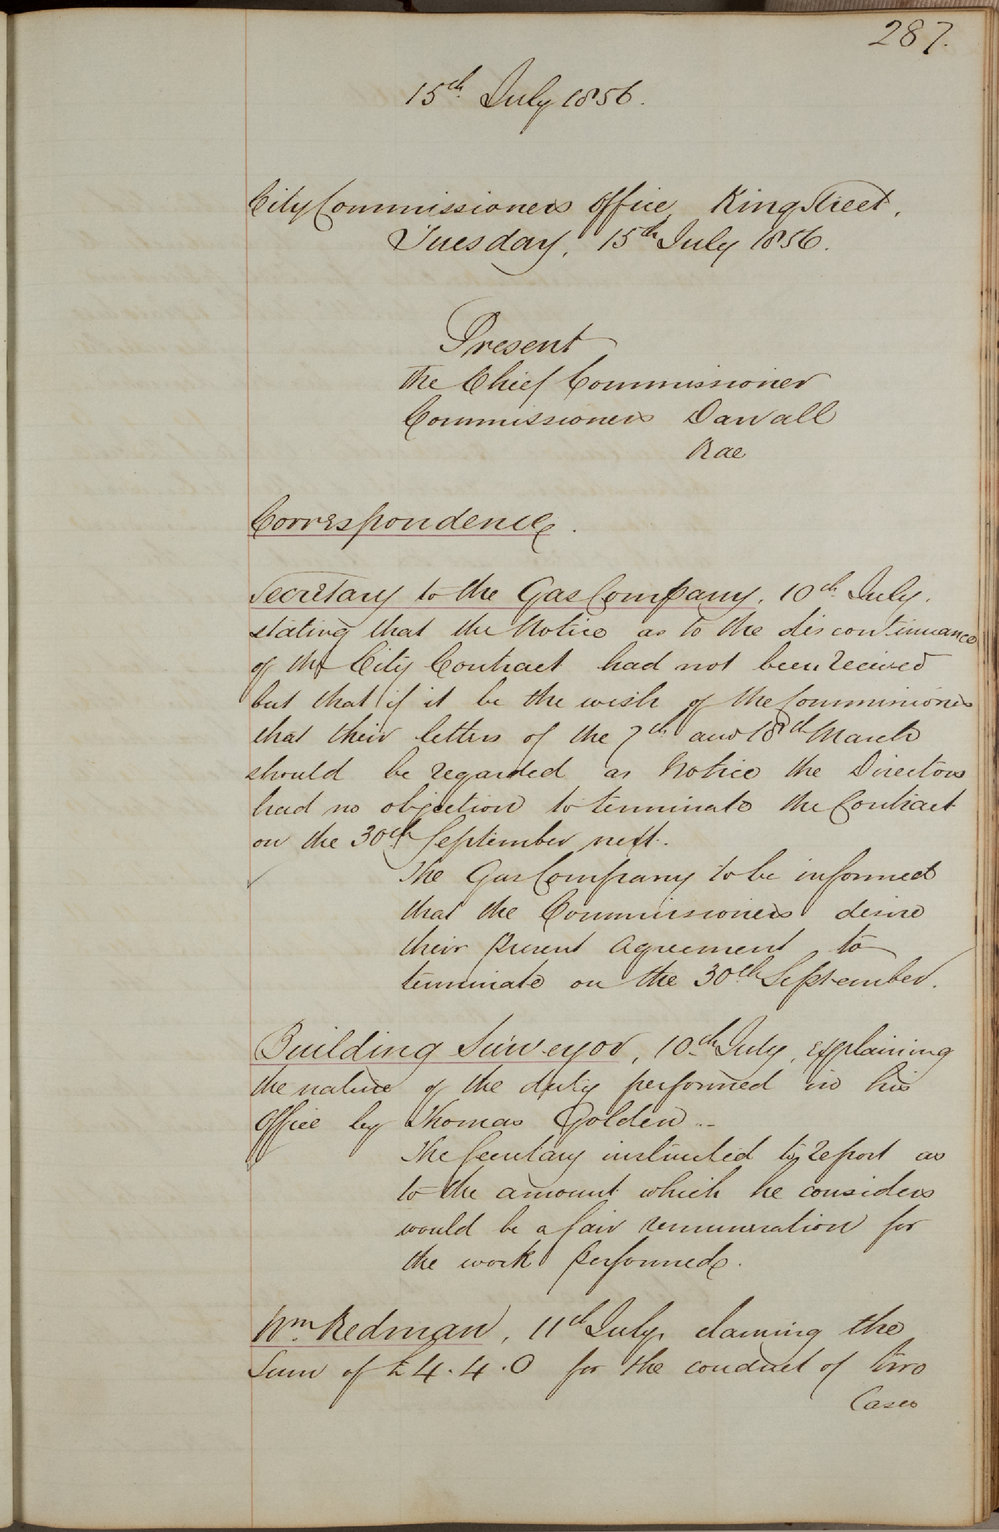 287.
15th July 1856.
City Commissioners Office, King Street,
Tuesday, 15th July 1856.
Present
The Chief Commissioner
Commissioners Darvall
Rae
Correspondence.
Secretary to the Gas Company, 10th July,
stating that the Notice as to the discontinuance
of the City Contract had not been received
but that if it be the wish of the Commissioners
that their letters of the 7th and 18th March
should be regarded as Notice the Directors
had no objection to terminate the Contract
on the 30th September next.
The Gas Company to be informed
that the Commissioners desire
their present Agreement to
terminate on the 30th September.
Building Surveyor, 10th July, explaining
the nature of the duty performed in his
Office by Thomas Golden..
The Secretary instructed to report as
to the amount which he considers
would be a fair remuneration for
the work performed.
Wm. Redman, 11th July, claiming the
Sum of £4.4.0 for the conduct of two
Cases